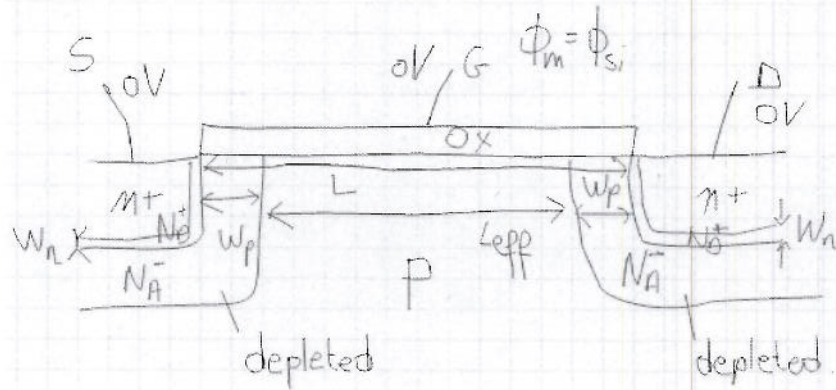 S 0V 0V G ϕm = ϕSi D 0V
OX
L Wp
n+ n+
Wn ND+ Wp Leff ND+ Wn
NA- P NA-
depleted depleted